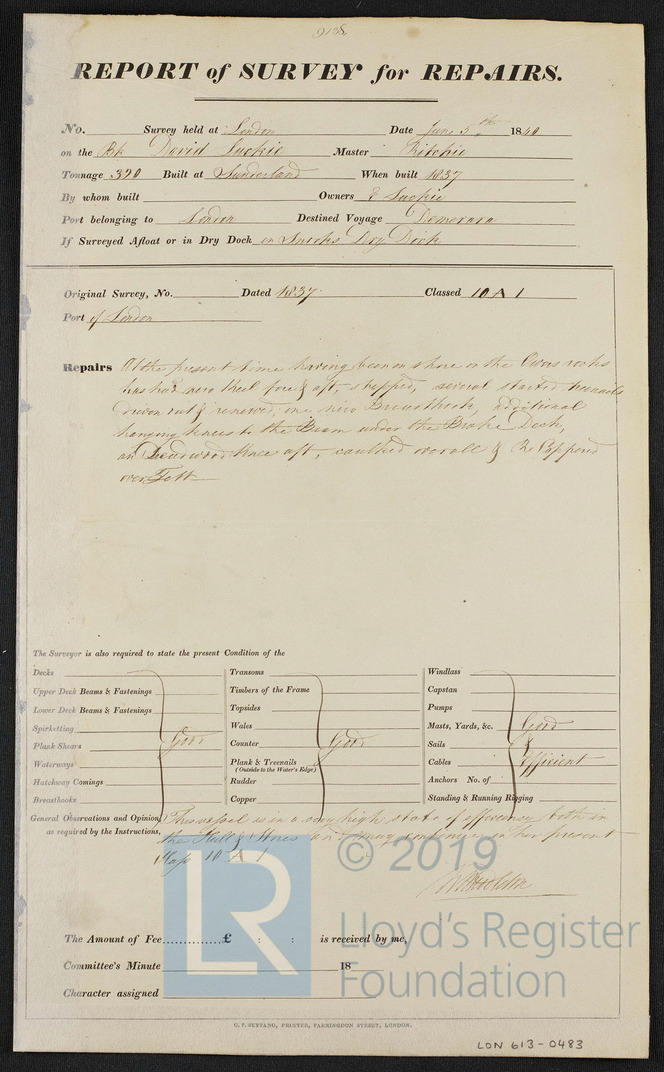 9138
REPORT of SURVEY for REPAIRS.
No. Survey held at London Date June 5th 1840
on the Bk David Luckie Master Ritchie
Tonnage 390 Built at Sunderland When built 1837
By whom built Owners Luckie
Port belonging to London Destined Voyage Demerara
If Surveyed Afloat or in Dry Dock in Dry Dock
Original Survey, No. Dated 1837. Classed 10 A 1
Port of London
Repairs At the present time having been on shore on the rocks
has had new Keel fore & aft, stopped, several started treenails
driven out & renewed, one new Breasthook, additional
hanging knees to the Beam under the Deck,
Knee aft, caulked overall & Re Coppered
over Felt
The Surveyor is also required to state the present Condition of the
Decks
Upper Deck Beams & Fastenings
Lower Deck Beams & Fastenings
Spirketting
Plank Shears Good
Waterways
Hatchway Comings
Breasthooks
Transoms
Timbers of the Frame
Topsides
Wales
Counter Good
Plank & Treenails
(Outside to the Water's Edge)
Rudder
Copper
Windlass
Capstan
Pumps
Masts, Yards, &c. Good
Sails &
Cables Efficient
Anchors No. of
Standing & Running Rigging
General Observations and Opinion, This vessel is in a very high state of efficiency both in
as required by the Instructions, the Hull & Stores and may continue in her present
Class 10 A 1
The Amount of Fee............£ : : is received by me,
Committee's Minute 18
Character assigned
© 2019
LR
Lloyd's Register
Foundation
C. F. SEYFANG, PRINTER, FARRINGDON STREET, LONDON.
LON 613-0483